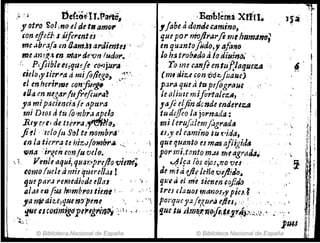 Defeos II.Parte,
y otro Sol.no el de tu amor
con effetto diferentes
me abrasa en llamas ardientes
me anega en mar de vn sudor.
P. sible es,que se conjura
cielo y tierra a mi
el en herirme con fuego
ella en negar su frescura?
ya mi paciencia se apura
mi Dios
fi el solo su Sol te nombra
en la tierra te hizo sombra
vna irgen con su velo.
Venle aqui,
como suele à mis querellas!
que para remedio de ellas
alas en sus hombros tiene
ya me dize,que no pene
que es comigo peregrino,
Emblema XIII. 152
y sabe à donde camino,
que por mostrarse me humano
en quanto sudo,y afano
lo ha trobado à lo diuino.
Yo me cansè en tu flaqueza
(me dize con voz suaue)
para que à tu peso graue
le aliuie mi fortaleza,
ya se el fin donde endereza
tu desseo la jornada:
mi Ierusalem sagrada
es,y el camino tu vida,
que quanto es mas afligida
por mi,tanto mas me agrada.
Alça los ojos,no ves
de mi à este leño vestido,
que à el me tienen cosido
tres clauos manos,y pies?
porque ya segura estes,
que tu amor no se te
pues
© Biblioteca Nacional de España
© Biblioteca Nacional de España